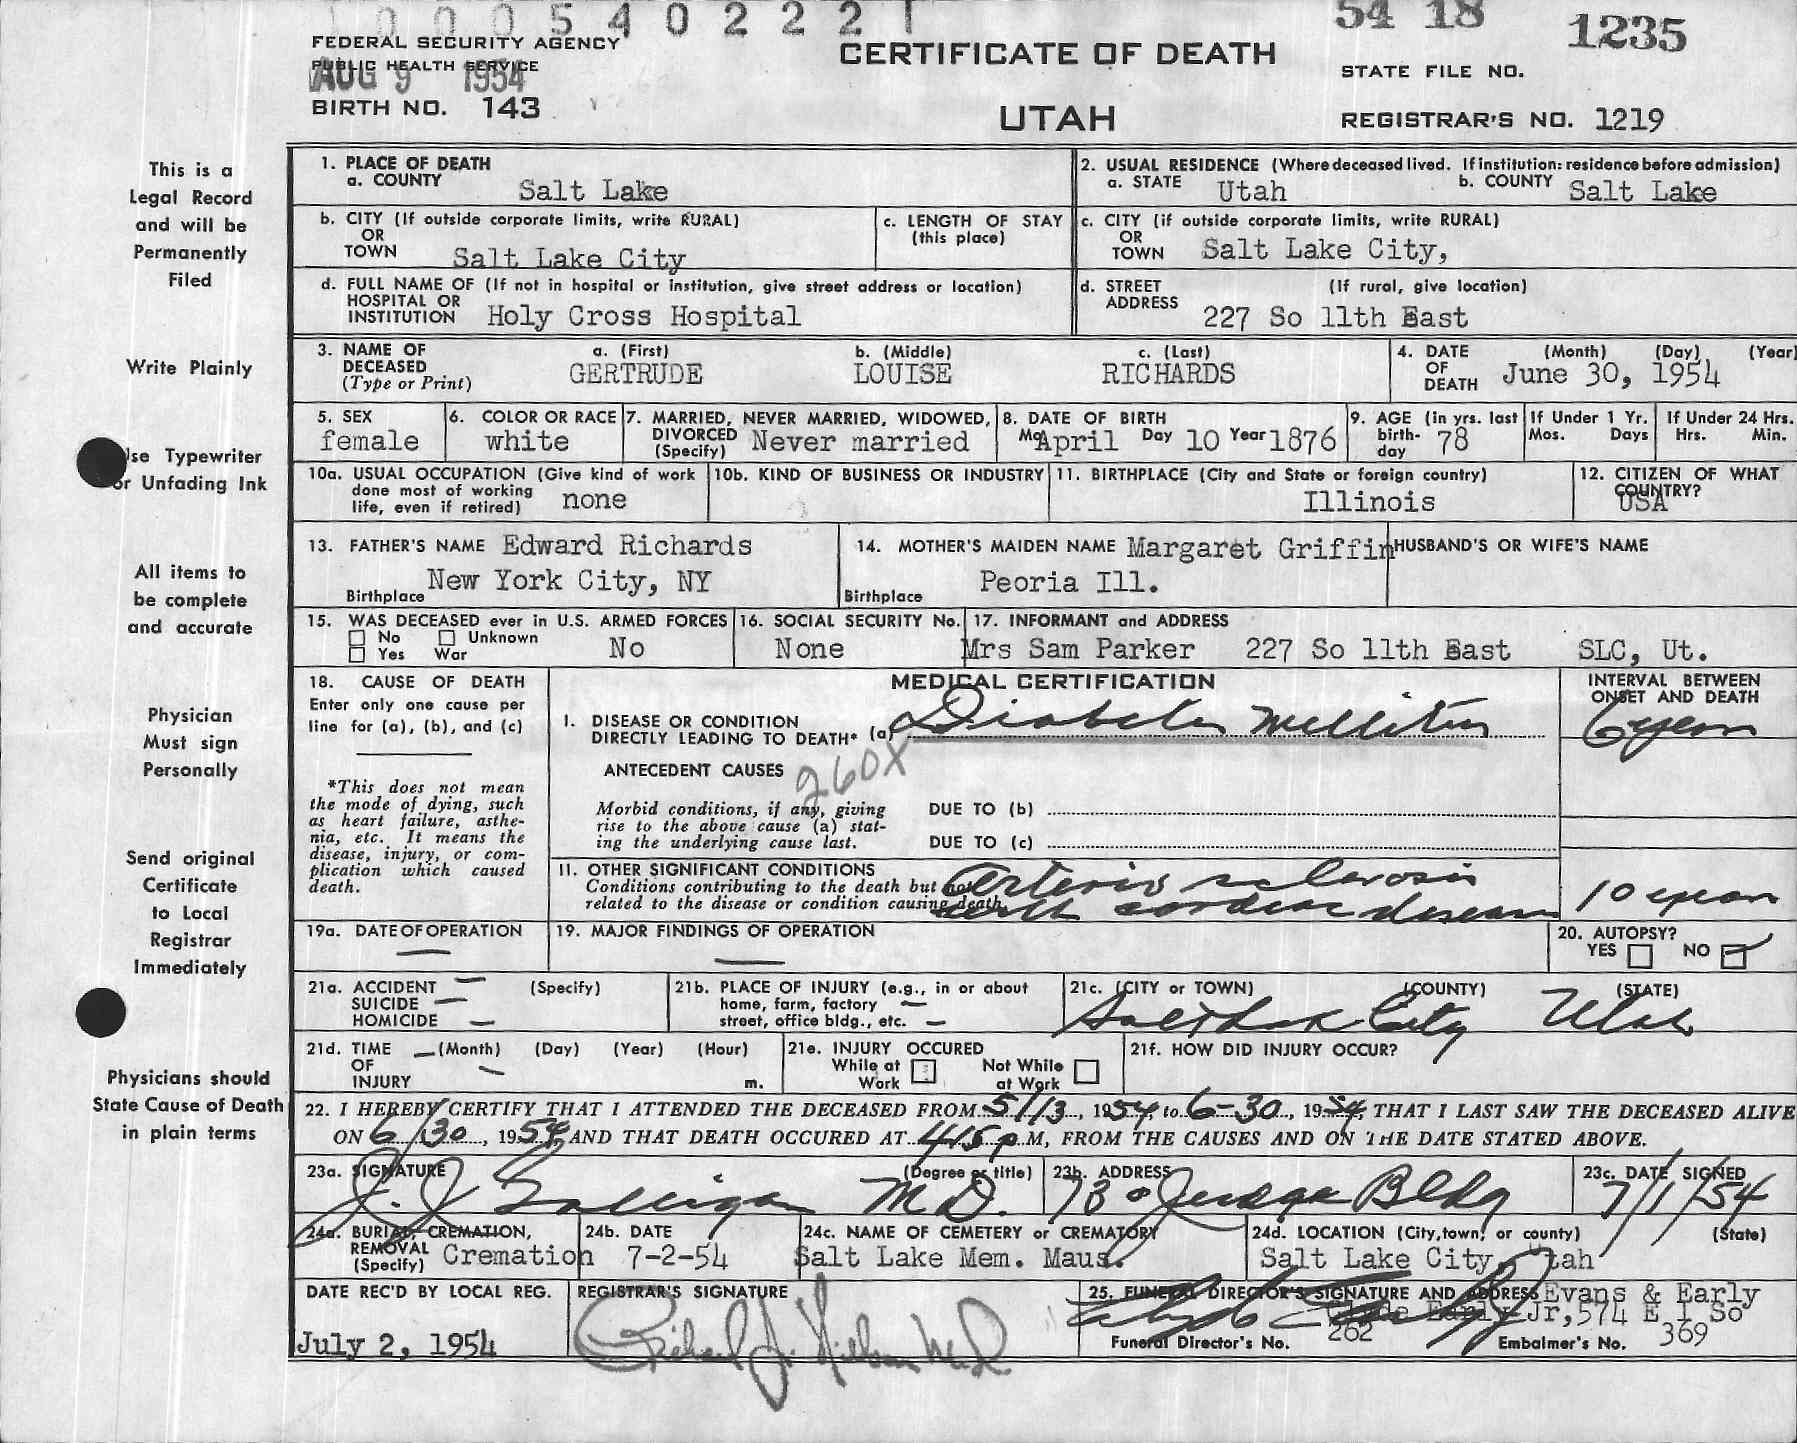 0 0 0 5 4 0 2 2 2 1
54 18 1235
FEDERAL SECURITY AGENCY
PUBLIC HEALTH SERVICE
AUG 9 1954
CERTIFICATE OF DEATH
STATE FILE NO.
BIRTH NO. 143
UTAH
REGISTRAR'S NO. 1219
This is a
Legal Record
and will be
Permanently
Filed
Write Plainly
Use Typewriter
or Unfading Ink
All items to
be complete
and accurate
Physician
Must sign
Personally
Send original
Certificate
to Local
Registrar
Immediately
Physicians should
State Cause of Death
in plain terms
1. PLACE OF DEATH
a. COUNTY Salt Lake
2. USUAL RESIDENCE (Where deceased lived. If institution: residence before admission)
a. STATE Utah b. COUNTY Salt Lake
b. CITY (If outside corporate limits, write RURAL)
OR
TOWN Salt Lake City
c. LENGTH OF STAY
(this place)
c. CITY (if outside corporate limits, write RURAL)
OR
TOWN Salt Lake City,
d. FULL NAME OF (If not in hospital or institution, give street address or location)
HOSPITAL OR
INSTITUTION Holy Cross Hospital
d. STREET (If rural, give location)
ADDRESS 227 So 11th East
3. NAME OF DECEASED (Type or Print)
a. (First) b. (Middle) c. (Last)
GERTRUDE LOUISE RICHARDS
4. DATE OF DEATH (Month) (Day) (Year)
June 30, 1954
5. SEX
female
6. COLOR OR RACE
white
7. MARRIED, NEVER MARRIED, WIDOWED,
DIVORCED (Specify) Never married
8. DATE OF BIRTH
Mo April Day 10 Year 1876
9. AGE (in yrs. last birth-day 78
If Under 1 Yr.
Mos. Days
If Under 24 Hrs.
Hrs. Min.
10a. USUAL OCCUPATION (Give kind of work
done most of working
life, even if retired) none
10b. KIND OF BUSINESS OR INDUSTRY
11. BIRTHPLACE (City and State or foreign country)
Illinois
12. CITIZEN OF WHAT
COUNTRY?
USA
13. FATHER'S NAME Edward Richards
Birthplace New York City, NY
14. MOTHER'S MAIDEN NAME Margaret Griffin
Birthplace Peoria Ill.
HUSBAND'S OR WIFE'S NAME
15. WAS DECEASED ever in U.S. ARMED FORCES
No Unknown
Yes War No
16. SOCIAL SECURITY No.
None
17. INFORMANT and ADDRESS
Mrs Sam Parker 227 So 11th East SLC, Ut.
18. CAUSE OF DEATH
Enter only one cause per
line for (a), (b), and (c)
*This does not mean
the mode of dying, such
as heart failure, asthe-
nia, etc. It means the
disease, injury, or com-
plication which caused
death.
MEDICAL CERTIFICATION
INTERVAL BETWEEN
ONSET AND DEATH
I. DISEASE OR CONDITION
DIRECTLY LEADING TO DEATH* (a) Diabetes Mellitus 6 years
ANTECEDENT CAUSES 260X
Morbid conditions, if any, giving
rise to the above cause (a) stat-
ing the underlying cause last.
DUE TO (b)
DUE TO (c)
11. OTHER SIGNIFICANT CONDITIONS
Conditions contributing to the death but not
related to the disease or condition causing death.
Arterio sclerosis
with cardiac disease 10 years
19a. DATE OF OPERATION
19. MAJOR FINDINGS OF OPERATION
20. AUTOPSY?
YES NO
21a. ACCIDENT (Specify)
SUICIDE
HOMICIDE
21b. PLACE OF INJURY (e.g., in or about
home, farm, factory
street, office bldg., etc.
21c. (CITY or TOWN) (COUNTY) (STATE)
Salt Lake City Utah
21d. TIME (Month) (Day) (Year) (Hour)
OF
INJURY m.
21e. INJURY OCCURED
While at Work Not While at Work
21f. HOW DID INJURY OCCUR?
22. I HEREBY CERTIFY THAT I ATTENDED THE DECEASED FROM 5/13, 1954, to 6-30, 1954, THAT I LAST SAW THE DECEASED ALIVE
ON 6/30, 1954, AND THAT DEATH OCCURED AT 415 p.M, FROM THE CAUSES AND ON THE DATE STATED ABOVE.
23a. SIGNATURE (Degree or title)
J. J. Galligan M D.
23b. ADDRESS
Judge Bldg
23c. DATE SIGNED
7/1/54
24a. BURIAL, CREMATION,
REMOVAL (Specify) Cremation
24b. DATE
7-2-54
24c. NAME OF CEMETERY or CREMATORY
Salt Lake Mem. Maus.
24d. LOCATION (City, town, or county) (State)
Salt Lake City, Utah
DATE REC'D BY LOCAL REG.
July 2, 1954
REGISTRAR'S SIGNATURE
25. FUNERAL DIRECTOR'S SIGNATURE AND ADDRESS Evans & Early
Clyde Early Jr, 574 E 1 So
Funeral Director's No. 262 Embalmer's No. 369